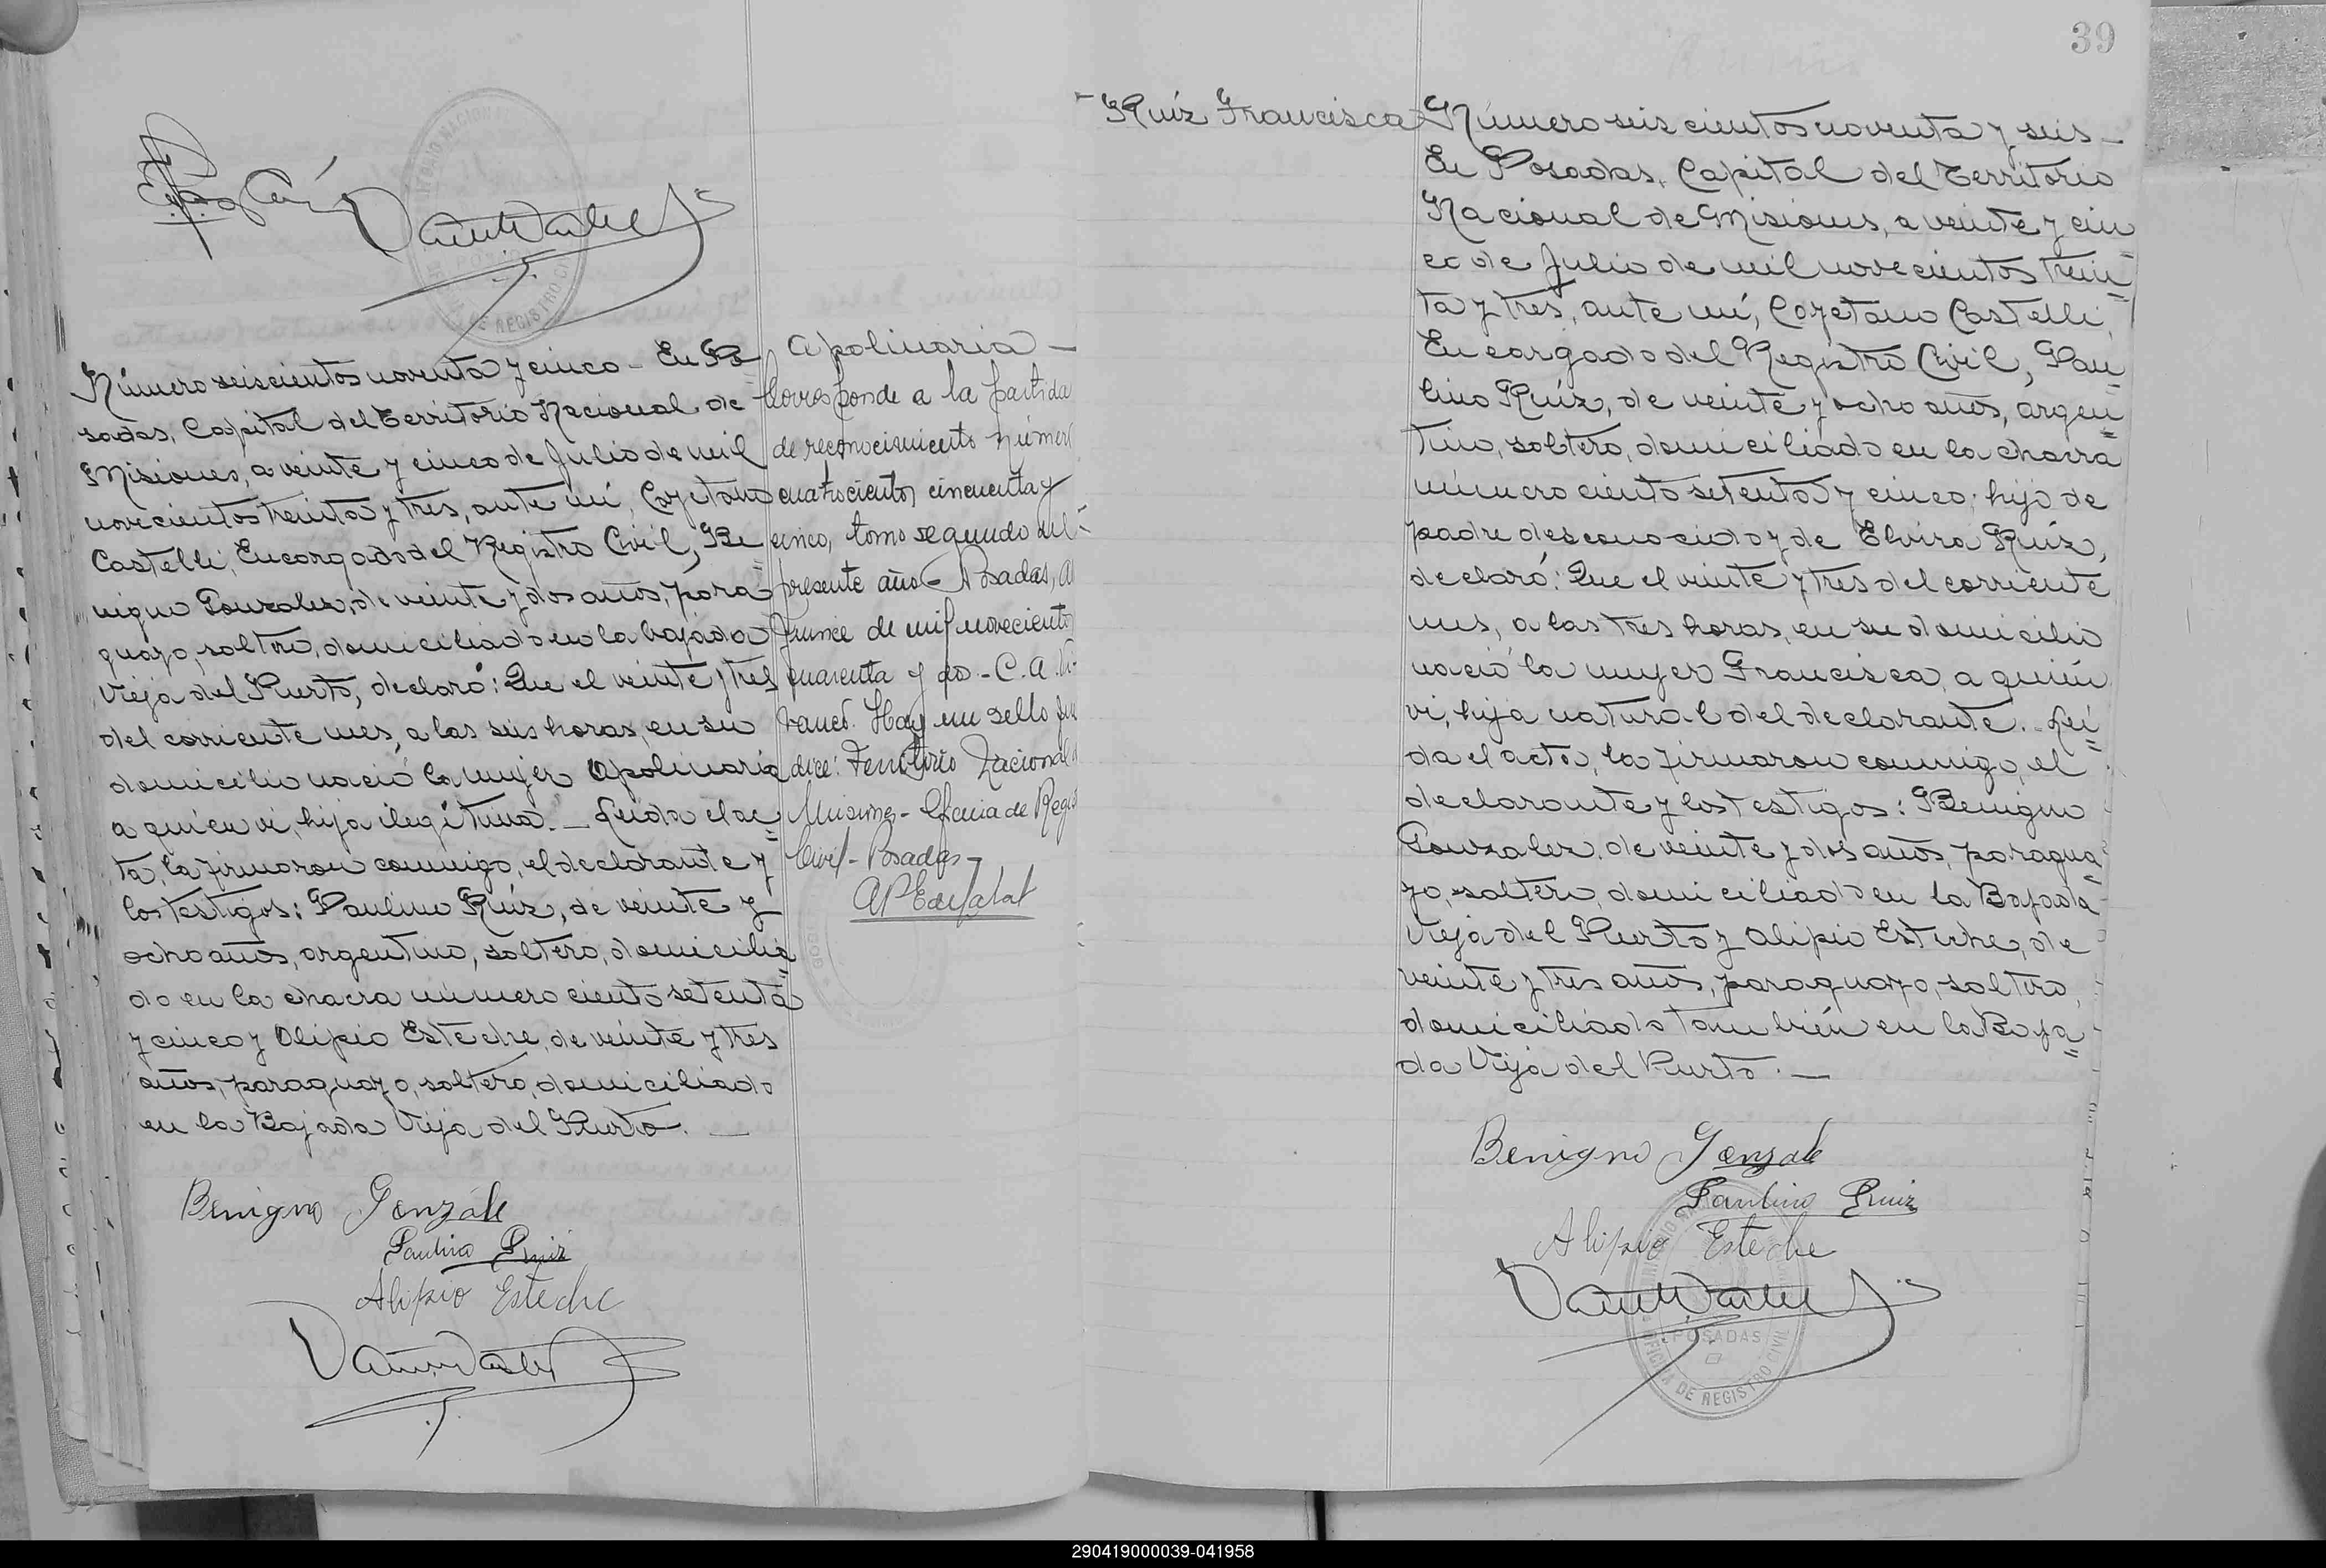 Número seiscientos noventa y cinco - En Po=
sadas, Capital del Territorio Nacional de
Misiones, a veinte y cinco de Julio de mil
novecientos treinta y tres, ante mí, Cayetano
Castelli, Encargado del Registro Civil, Be=
nigno Gonzalez, de veinte y dos años, para=
guayo, soltero, domiciliado en la bajada
Vieja del Puerto, declaró: Que el veinte y tres
del corriente mes, a las seis horas, en su
domicilio nació la mujer Apolinaria
a quien vi, hija ilegitima. _ Leída el ac=
ta, la firmaron conmigo, el declarante y
los testigos: Paulino Ruíz, de veinte y
ocho años, argentino, soltero, domicilia=
do en la chacra número ciento setenta
y cinco y Alipio Esteche, de veinte y tres
años, paraguayo, soltero, domiciliado
en la Bajada Vieja del Puerto. _
Benigno Gonzále
Paulino Ruiz
Alipio Esteche
Apolinaria _
Corresponde a la partida
de reconocimiento número
cuatrocientos cincuenta y
cinco, tomo segundo del
presente año - Posadas,
quince de mil novecientos
cuarenta y do - C. A.
Hay un sello que
dice: Territorio Nacional
Misiones - Oficina de Regis
Civil - Posadas -
39
Ruíz Francisca
Número seis cientos noventa y seis -
En Posadas, Capital del Territorio
Nacional de Misiones, a veinte y cin=
co de Julio de mil novecientos trein=
ta y tres, ante mí, Cayetano Castelli,
Encargado del Registro Civil, Pau=
lino Ruíz, de veinte y ocho años, argen=
tino, soltero, domiciliado en la chacra
número ciento setenta y cinco, hijo de
padre desconocido y de Elvira Ruíz,
declaró: Que el veinte y tres del corriente
mes, a las tres horas, en su domicilio
nació la mujer Francisca, a quién
vi, hija natural del declarante. - Leí=
da el acta, la firmaron conmigo, el
declarante y los testigos: Benigno
Gonzalez, de veinte y dos años, paragua=
yo, soltero, domiciliado en la Bajada
Vieja del Puerto y Alipio Esteche, de
veinte y tres años, paraguayo, soltero,
domiciliado también en la Baja=
da Vieja del Puerto. _
Benigno Gonzále
Paulino Ruiz
Alipio Esteche
POSADAS
OFICINA DE REGISTRO CIVIL
290419000039-041958